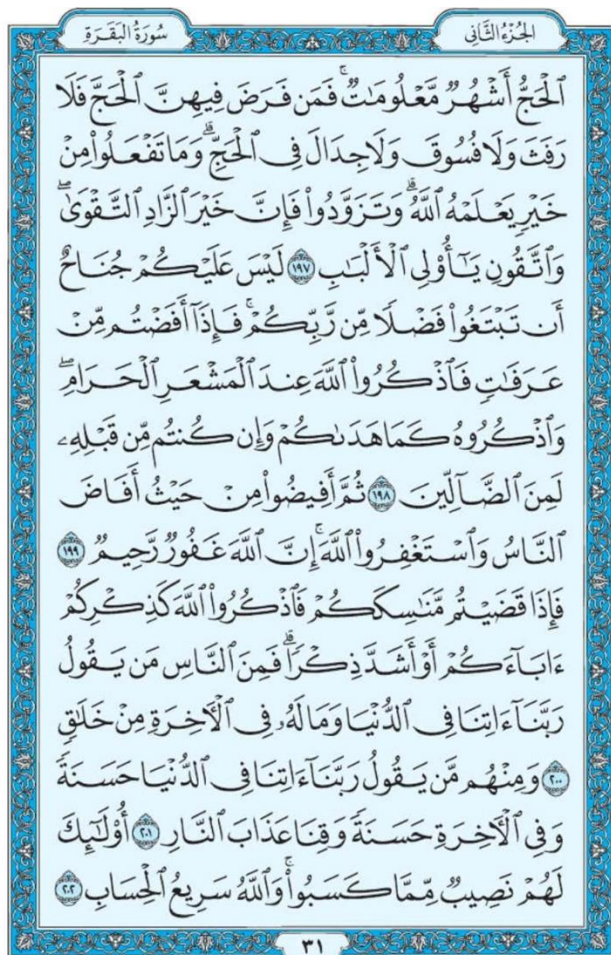 سُورَةُ البَقَرَةِ
الجُزْءُ الثَّانِي
ٱلْحَجُّ أَشْهُرٌ مَّعْلُومَٰتٌ ۚ فَمَن فَرَضَ فِيهِنَّ ٱلْحَجَّ فَلَا
رَفَثَ وَلَا فُسُوقَ وَلَا جِدَالَ فِى ٱلْحَجِّ ۗ وَمَا تَفْعَلُوا۟ مِنْ
خَيْرٍ يَعْلَمْهُ ٱللَّهُ ۗ وَتَزَوَّدُوا۟ فَإِنَّ خَيْرَ ٱلزَّادِ ٱلتَّقْوَىٰ ۖ
وَٱتَّقُونِ يَٰٓأُو۟لِى ٱلْأَلْبَٰبِ ١٩٧ لَيْسَ عَلَيْكُمْ جُنَاحٌ
أَن تَبْتَغُوا۟ فَضْلًا مِّن رَّبِّكُمْ ۚ فَإِذَآ أَفَضْتُم مِّنْ
عَرَفَٰتٍ فَٱذْكُرُوا۟ ٱللَّهَ عِندَ ٱلْمَشْعَرِ ٱلْحَرَامِ ۖ
وَٱذْكُرُوهُ كَمَا هَدَىٰكُمْ وَإِن كُنتُم مِّن قَبْلِهِۦ
لَمِنَ ٱلضَّآلِّينَ ١٩٨ ثُمَّ أَفِيضُوا۟ مِنْ حَيْثُ أَفَاضَ
ٱلنَّاسُ وَٱسْتَغْفِرُوا۟ ٱللَّهَ ۚ إِنَّ ٱللَّهَ غَفُورٌ رَّحِيمٌ ١٩٩
فَإِذَا قَضَيْتُم مَّنَٰسِكَكُمْ فَٱذْكُرُوا۟ ٱللَّهَ كَذِكْرِكُمْ
ءَابَآءَكُمْ أَوْ أَشَدَّ ذِكْرًا ۗ فَمِنَ ٱلنَّاسِ مَن يَقُولُ
رَبَّنَآ ءَاتِنَا فِى ٱلدُّنْيَا وَمَا لَهُۥ فِى ٱلْءَاخِرَةِ مِنْ خَلَٰقٍ
٢٠٠ وَمِنْهُم مَّن يَقُولُ رَبَّنَآ ءَاتِنَا فِى ٱلدُّنْيَا حَسَنَةً
وَفِى ٱلْءَاخِرَةِ حَسَنَةً وَقِنَا عَذَابَ ٱلنَّارِ ٢٠١ أُو۟لَٰٓئِكَ
لَهُمْ نَصِيبٌ مِّمَّا كَسَبُوا۟ ۚ وَٱللَّهُ سَرِيعُ ٱلْحِسَابِ ٢٠٢
٣١